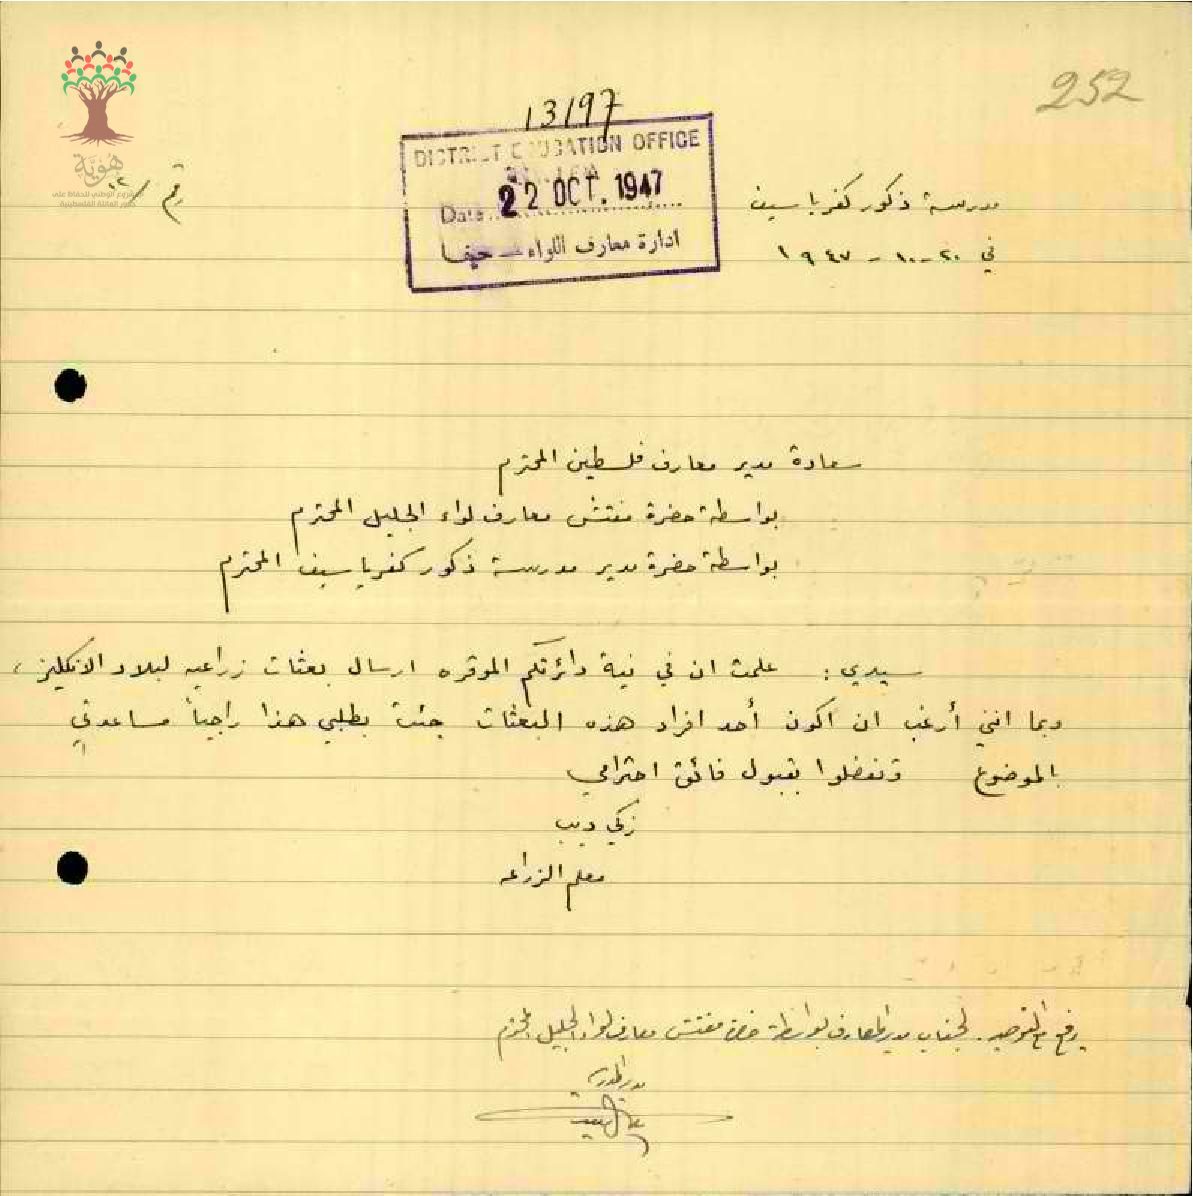 252
13197
DISTRICT EDUCATION OFFICE
Date 22 OCT. 1947
ادارة معارف اللواء - حيفا
هُوِيَّة
المشروع الوطني للحفاظ على
جذور العائلة الفلسطينية
رقم /١٢
مدرسة ذكور كفرياسيف
في ٢٠-١٠-١٩٤٧
سعادة مدير معارف فلسطين المحترم
بواسطة حضرة مفتش معارف لواء الجليل المحترم
بواسطة حضرة مدير مدرسة ذكور كفرياسيف المحترم
سيدي: علمت ان في نية دائرتكم الموقره ارسال بعثات زراعيه لبلاد الانكليز،
وبما انني أرغب ان اكون أحد افراد هذه البعثات جئت بطلبي هذا راجياً مساعدتي
بالموضوع وتفضلوا بقبول فائق احترامي
زكي ديب
معلم الزراعه
يرفع مع التوصيه. لجناب مدير المعارف بواسطة حضرة مفتش معارف لواء الجليل المحترم
مدير المدرسة